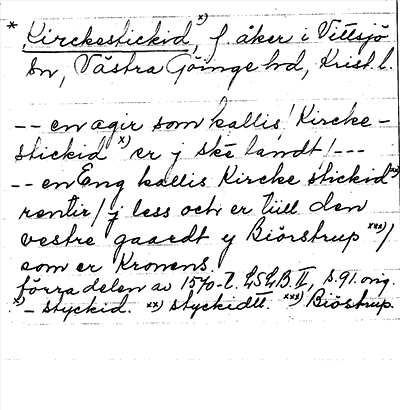 * Kirckestickid x), f. åker i Vittsjö
sn, Västra Göinge hd, Krist. l.
-- en agir som kallis / Kircke-
stickid x) er j ske landt / ---
-- en Eng kallis Kircke stickid xx)
rentir / j less och er till den
vestre gaardt y Biörstrup xxx) /
som er Kronens.
förra delen av 1570-t. LSLB. II, s. 91. orig.
x) - styckid. xx) styckidtt. xxx) Biöstrup.